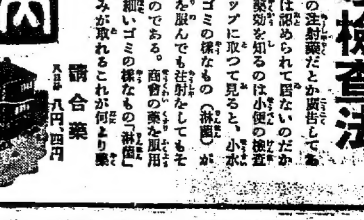 検査法
の注射薬だとか廣告してあ
は認められて居ないのだか
薬効を知るのは小便の検査
ップに取つて見ると、小水
ゴミの様なもの（淋菌）が
を服んでも注射をしてもそ
のである。商會の薬を服用
細いゴミの様なもの「淋菌」
みが取れるこれが何より薬
請合薬
八円、四円